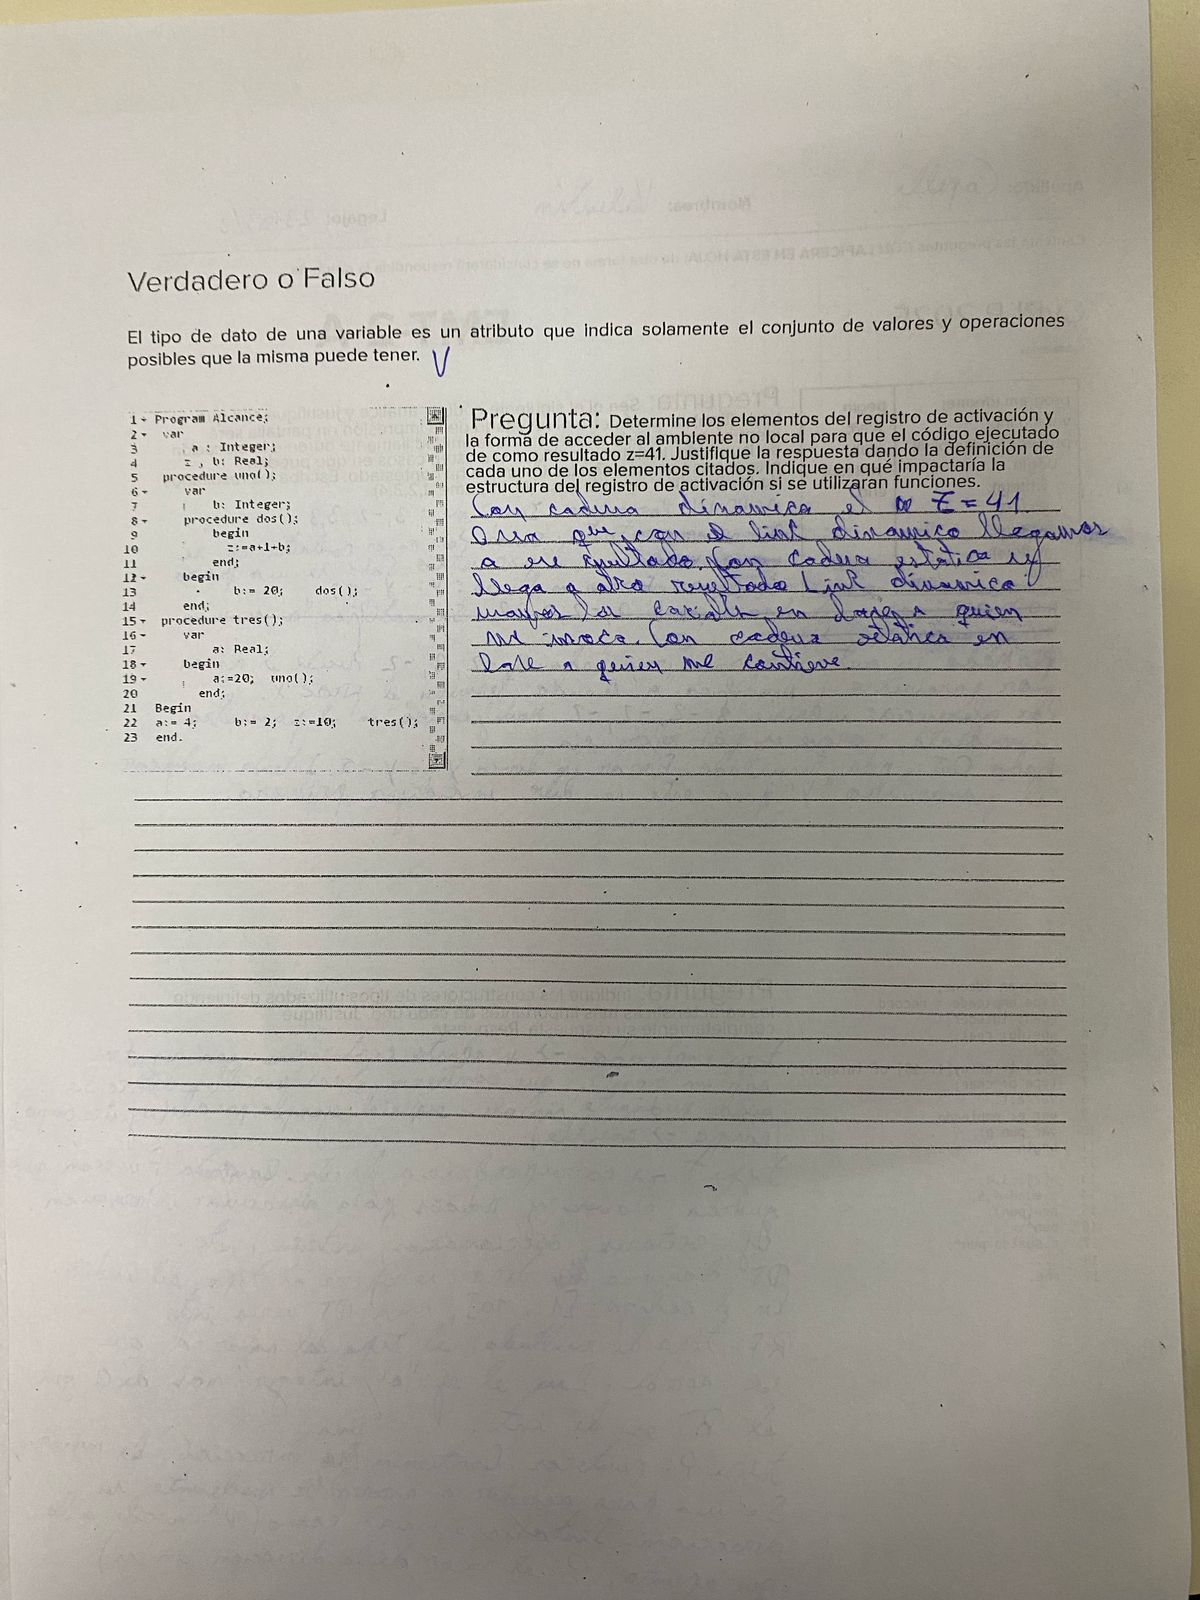 Verdadero o Falso
El tipo de dato de una variable es un atributo que indica solamente el conjunto de valores y operaciones
posibles que la misma puede tener. V
1 Program Alcance;
2 var
3 a : Integer;
4 z , b: Real;
5 procedure uno();
6 var
7 b: Integer;
8 procedure dos();
9 begin
10 z:=a+1+b;
11 end;
12 begin
13 b:= 20; dos();
14 end;
15 procedure tres();
16 var
17 a: Real;
18 begin
19 a:=20; uno();
20 end;
21 Begin
22 a:= 4; b:= 2; z:=10; tres();
23 end.
Pregunta: Determine los elementos del registro de activación y
la forma de acceder al ambiente no local para que el código ejecutado
de como resultado z=41. Justifique la respuesta dando la definición de
cada uno de los elementos citados. Indique en qué impactaría la
estructura del registro de activación si se utilizaran funciones.
Con cadena dinamica el Z = 41
que con el link dinamico llegamos
a ese resultado. Con cadena estatica se
llega a otro resultado Link dinamico
en base a quien
me invoco. Con cadena estatica en
base a quien me contiene.